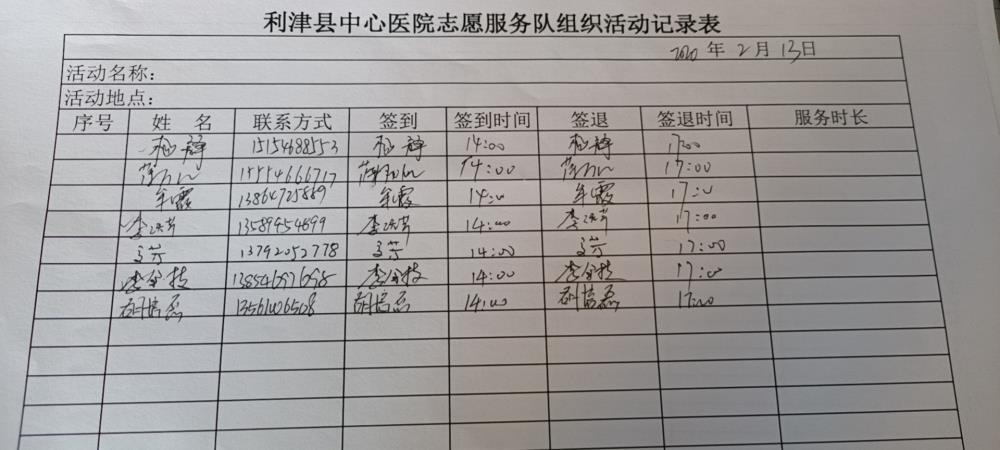 利津县中心医院志愿服务队组织活动记录表
2020 年 2 月 13 日
活动名称：
活动地点：
序号 姓 名 联系方式 签到 签到时间 签退 签退时间 服务时长
15154688553 14:00 17:00
15554666717 14:00 17:00
牟霞 13864725889 牟霞 14:00 牟霞 17:00
李洪芹 13589954699 李洪芹 14:00 李洪芹 17:00
13792052778 14:00 17:00
李金枝 13854697698 李金枝 14:00 李金枝 17:00
胡培磊 胡培磊 14:00 胡培磊 17:00